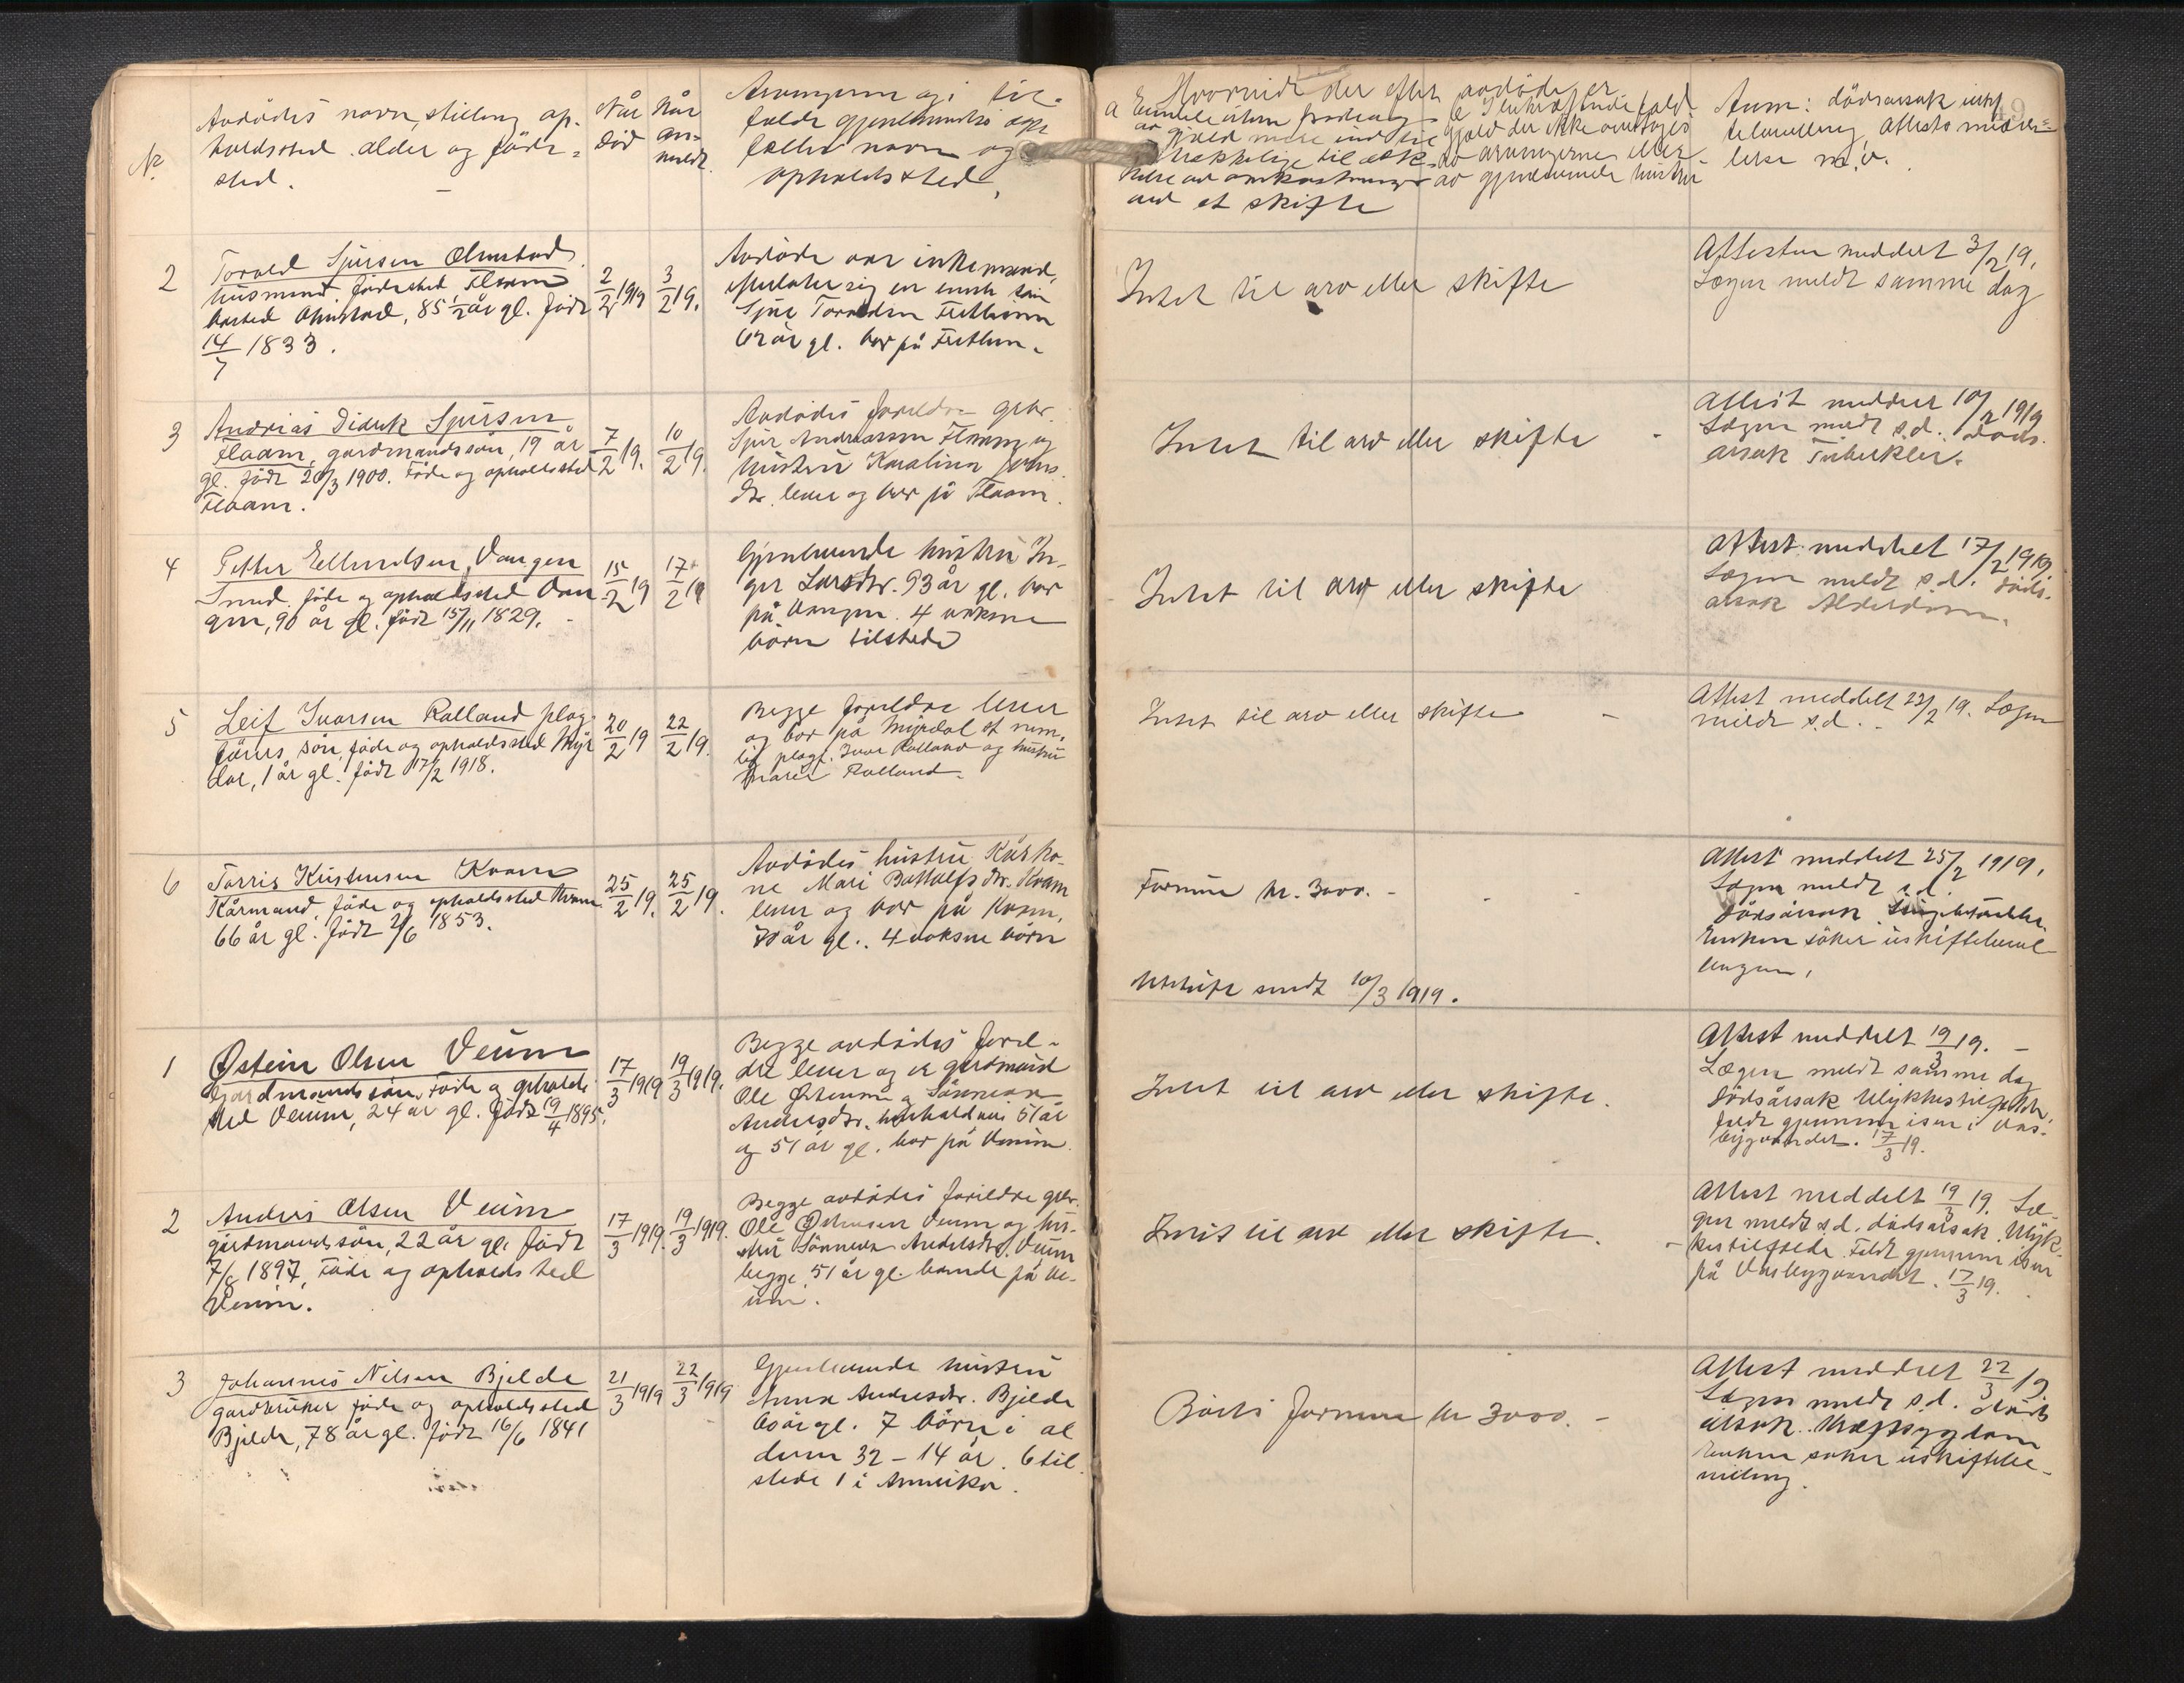 No.
Avdødes navn, stilling op-
holdssted alder og føde-
sted.
Når
død
Når
an-
meldt.
Arvingerne og i til-
fælde gjenlevendes egte
fælles navn og
opholdssted.
Hvorvidt der efter avdøde er
av gjæld mere end til
strekkelige til dæk-
ned et skifte
gjæld der ikke overtages
av arvingerne eller
av gjenlevende hustru
Anm: dødsårsak
Attests medde-
lelse m.v.
2
Torvald Sjursen Ølmstad
husmand, fødested Flaam
bosted Ølmstad, 85 1/2 år gl. født
14/7 1833.
2/2 1919
3/2 19.
Avdøde var enkemand,
efterlater sig en ensk søn
Sjur Torvaldsen Fretheim
62 år gl. bor på Fretheim.
Intet til arv eller skifte
Attesten meddelt 3/2 19.
Lægen meldt samme dag
3
Andreas Didrik Sjursen
Flaam, gardmandssøn, 19 år
gl. født 20/3 1900. Føde og opholdssted
Flaam.
7/2 19.
10/2 19.
Avdødes forældre grbr.
Sjur Andreassen Flaam og
hustru Karolina Johns
dtr. lever og bor på Flaam.
Intet til arv eller skifte -
Attest meddelt 10/2 1919
Lægen meldt s.d. døds-
årsak Tuberkler.
4
Petter Ellendsen Vangen
Smed føde og opholdssted Van
gen, 90 år gl. født 15/11 1829.
15/2 19
17/2 19
Gjenlevende hustru In-
ger Larsdtr. 93 år gl. bor
på Vangen. 4 voksne
børn tilstede
Intet til arv eller skifte
Attest meddelt 17/2 1919
Lægen meldt s.d. døds-
årsak Alderdom.
5
Leif Ivarsen Rolland plog
førers søn, føde og opholdssted Myr
dal, 1 år gl. født 17/2 1918.
20/2 19
22/2 19.
Begge forældre lever
og bor på Myrdal et nem-
lig plogf. Ivar Rolland og hustru
Marie Rolland.
Intet til arv eller skifte -
Attest meddelt 22/2 19. Lægen
meldt s.d. -
6
Torris Kristensen Kvam
Kårmand, føde og opholdssted Kvam
66 år gl. født 2/6 1853.
25/2 19.
25/2 19.
Avdødes hustru Kårko-
ne Mari Bottolfsdtr. Kvam
lever og bor på Kvam,
70 år gl. 4 voksne børn
Formue kr. 3000. -
Utskrift sendt 10/3 1919.
Attest meddelt 25/2 1919.
Lægen meldt s.d.
Dødsårsak
Enken søker uskiftebevil
lingen.
1
Østein Olsen Veum
Gardmandssøn, Føde og opholds
sted Veum, 24 år gl. født 19/4 1895.
17/3 1919
19/3 1919.
Begge avdødes foræl-
dre lever og er gardmand
Ole Østensen og Sønneva
Andersdtr. henholdsvis 51 år
og 51 år gl. bor på Veum.
Intet til arv eller skifte.
Attest meddelt 19/3 19. -
Lægen meldt samme dag
Dødsårsak Ulykkestilfælde
faldt gjennem isen i Vas-
bygvandet. 17/3 19.
2
Anders Olsen Veum
gardmandssøn, 22 år gl. født
7/8 1897, Føde og opholdssted
Veum.
17/3 1919.
19/3 1919.
Begge avdødes forældre grbr.
Ole Østensen Veum og hus-
stru Sønneva Andersdtr. Veum
begge 51 år gl. boende på Ve-
um.
Intet til arv eller skifte.
Attest meddelt 19/3 19. Læ-
gen meldt s.d. dødsårsak. Ulyk-
kestilfælde. Faldt gjennem isen
på Vasbygvandet. 17/3 19.
3
Johannes Nilsen Bjelde
gardbruker føde og opholdssted
Bjelde, 78 år gl. født 16/6 1841
21/3 1919
22/3 1919
Gjenlevende hustru
Anna Andersdtr. Bjelde
60 år gl. 7 børn i al
deren 32 - 14 år. 6 til
stede 1 i Amerika.
Boets formue kr 3000. -
Attest meddelt 22/3 19.
Lægen meldt s.d. døds
årsak. Kræftsygdom
Enken søker uskiftebe-
villing.